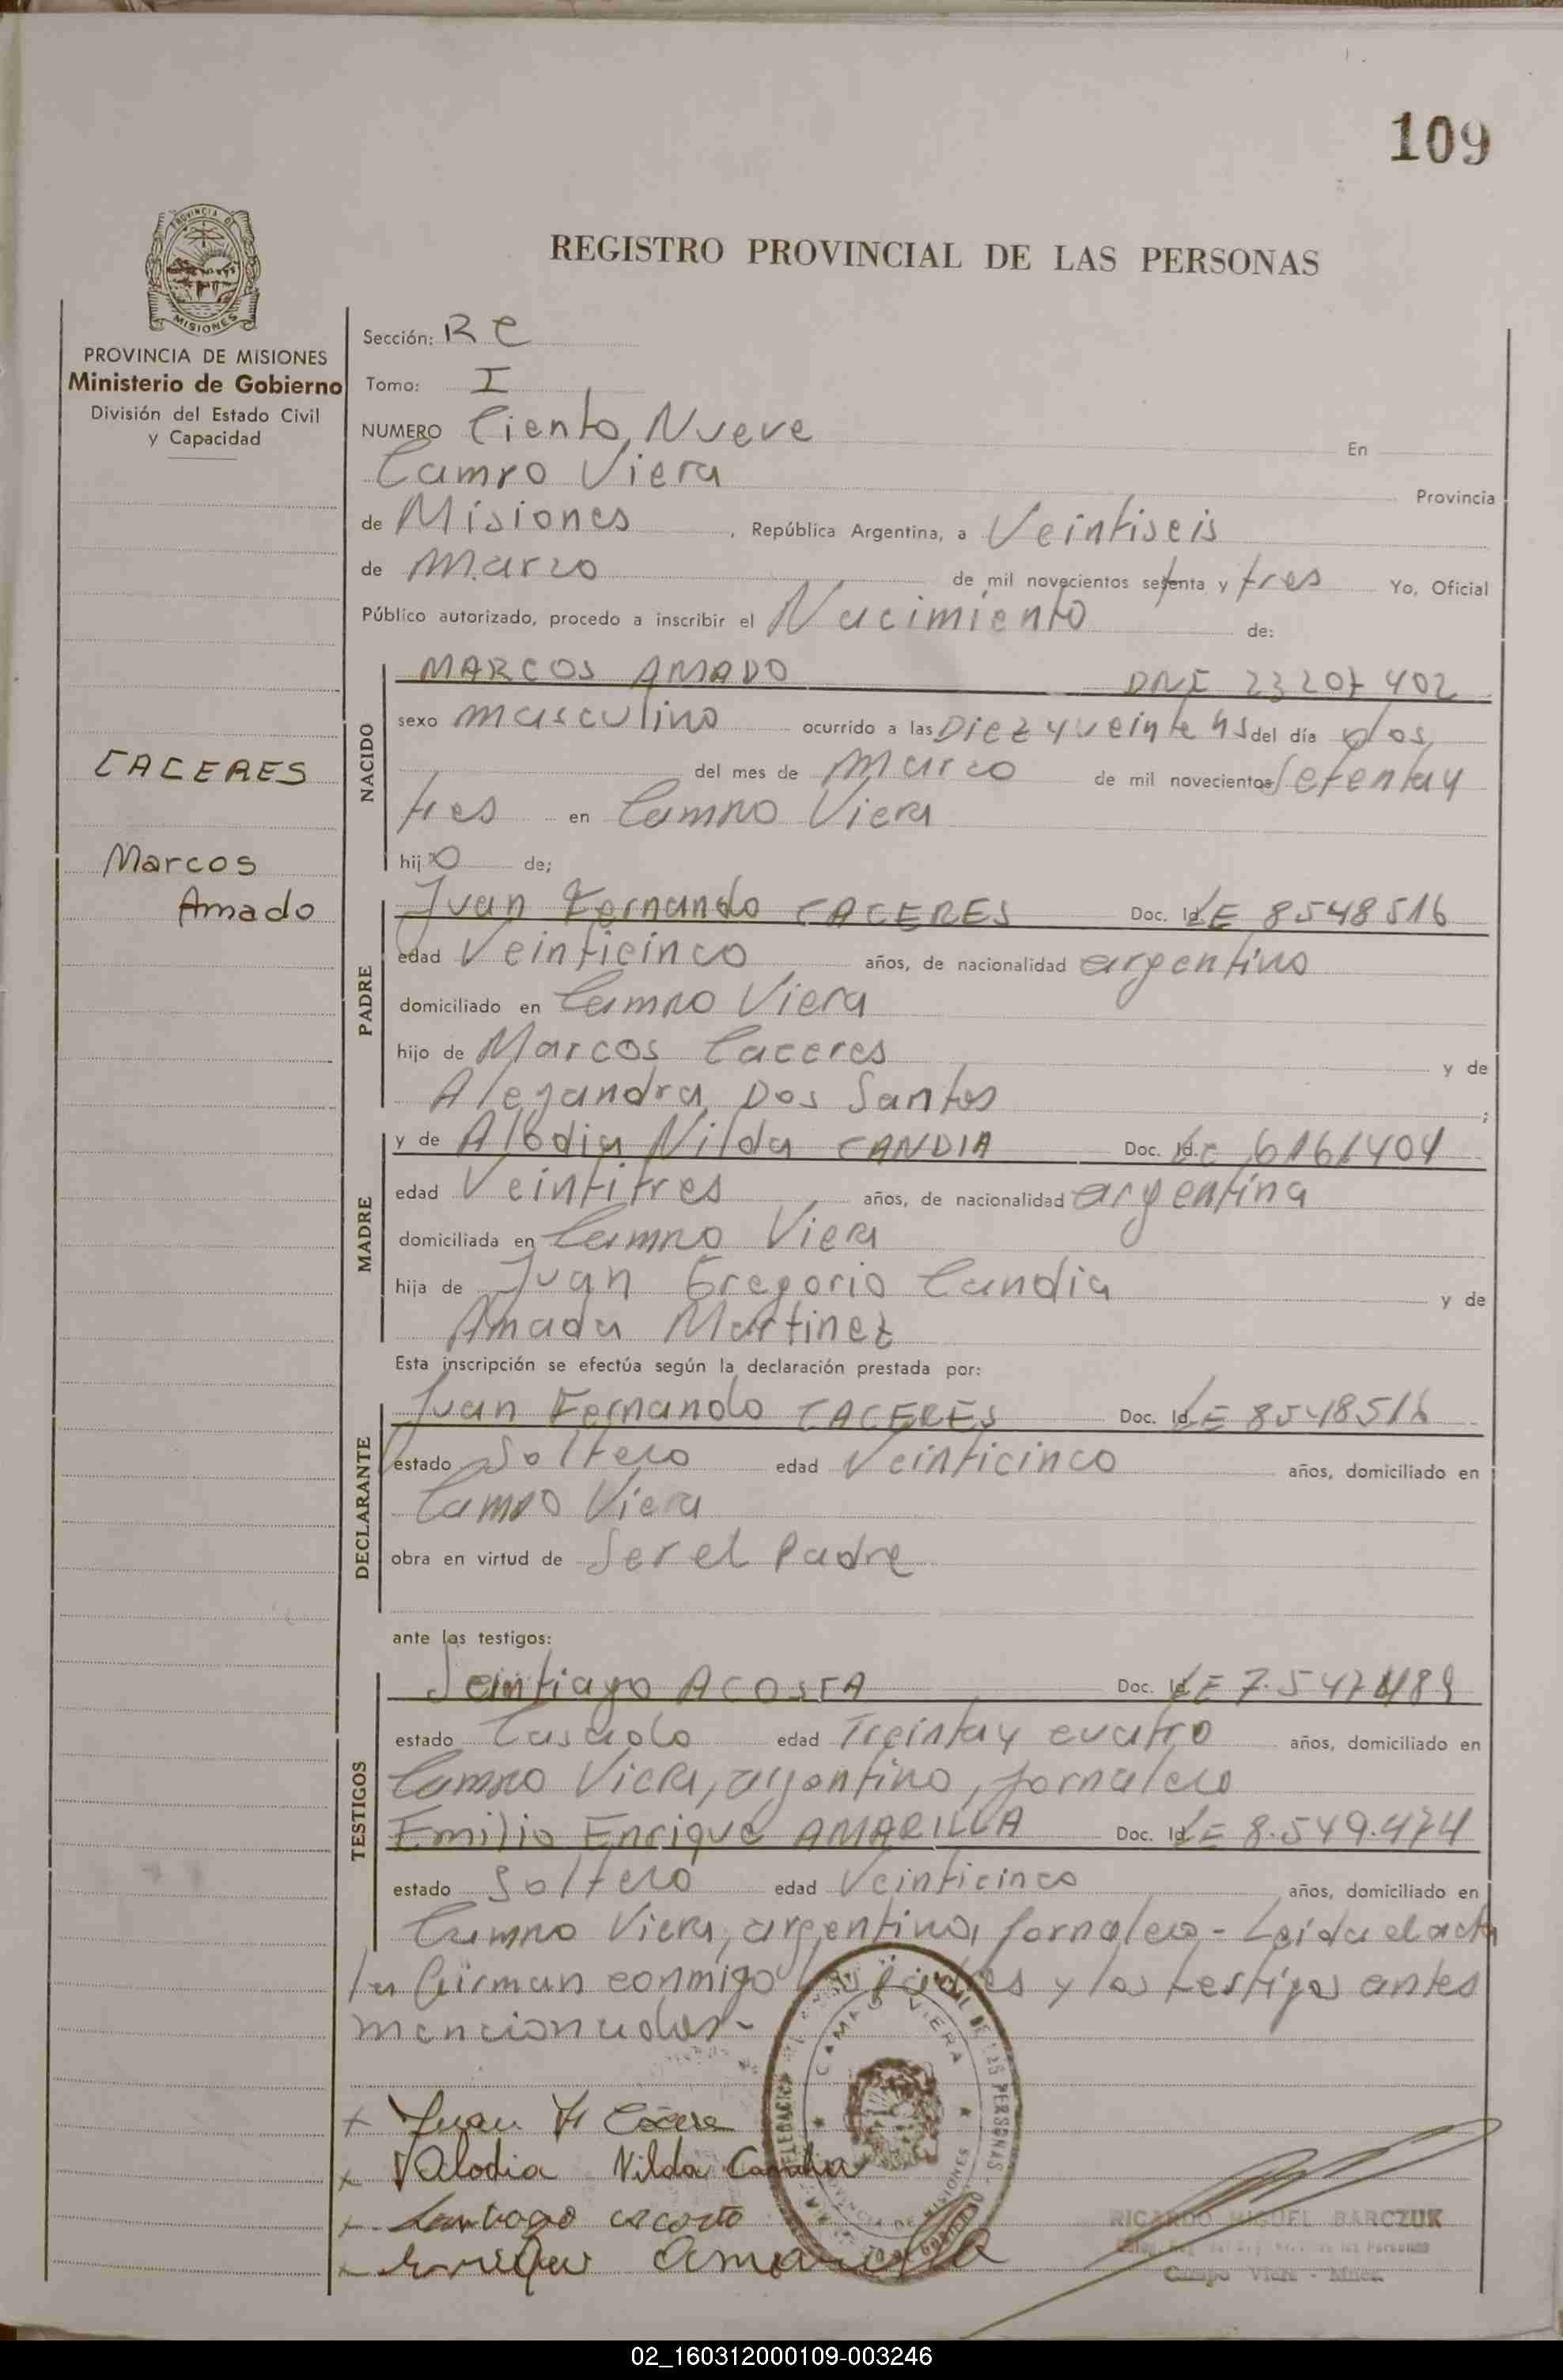 109
REGISTRO PROVINCIAL DE LAS PERSONAS
PROVINCIA DE
MISIONES
PROVINCIA DE MISIONES
Ministerio de Gobierno
División del Estado Civil
y Capacidad
CACERES
Marcos
Amado
Sección: R C
Tomo: I
NUMERO Ciento Nueve En
Campo Viera Provincia
de Misiones, República Argentina, a Veintiseis
de Marzo de mil novecientos setenta y tres Yo, Oficial
Público autorizado, procedo a inscribir el Nacimiento de:
NACIDO
MARCOS AMADO DNI 23 207 402
sexo masculino ocurrido a las Diez y veinte hs del día dos
del mes de Marzo de mil novecientos Setenta y
tres en Campo Viera
hijo de;
PADRE
Juan Fernando CACERES Doc. Id. LE 8548516
edad Veinticinco años, de nacionalidad argentino
domiciliado en Campo Viera
hijo de Marcos Caceres y de
Alejandra Dos Santos ;
MADRE
y de Alodia Nilda CANDIA Doc. Id. LC 6161404
edad Veintitres años, de nacionalidad argentina
domiciliada en Campo Viera
hija de Juan Gregorio Candia y de
Amada Martinez
Esta inscripción se efectúa según la declaración prestada por:
DECLARANTE
Juan Fernando CACERES Doc. Id. LE 8548516
estado Soltero edad Veinticinco años, domiciliado en
Campo Viera
obra en virtud de Ser el Padre
ante los testigos:
TESTIGOS
Santiago ACOSTA Doc. Id. LE
estado Casado edad Treinta y cuatro años, domiciliado en
Campo Viera, argentino, jornalero
Emilio Enrique AMARILLA Doc. Id. LE 8.549.474
estado Soltero edad Veinticinco años, domiciliado en
Campo Viera, argentino, jornalero - Leida el acta
la firman conmigo los padres y los testigos antes
mencionados-
CAMPO VIERA
DE LAS PERSONAS
PROVINCIA DE MISIONES
x Juan F Cacere
x Alodia Nilda Candia
x Santiago acosta
x Enrique Amarilla
RICARDO MIGUEL BARCZUK
Campo Viera - Mnes.
02_160312000109-003246